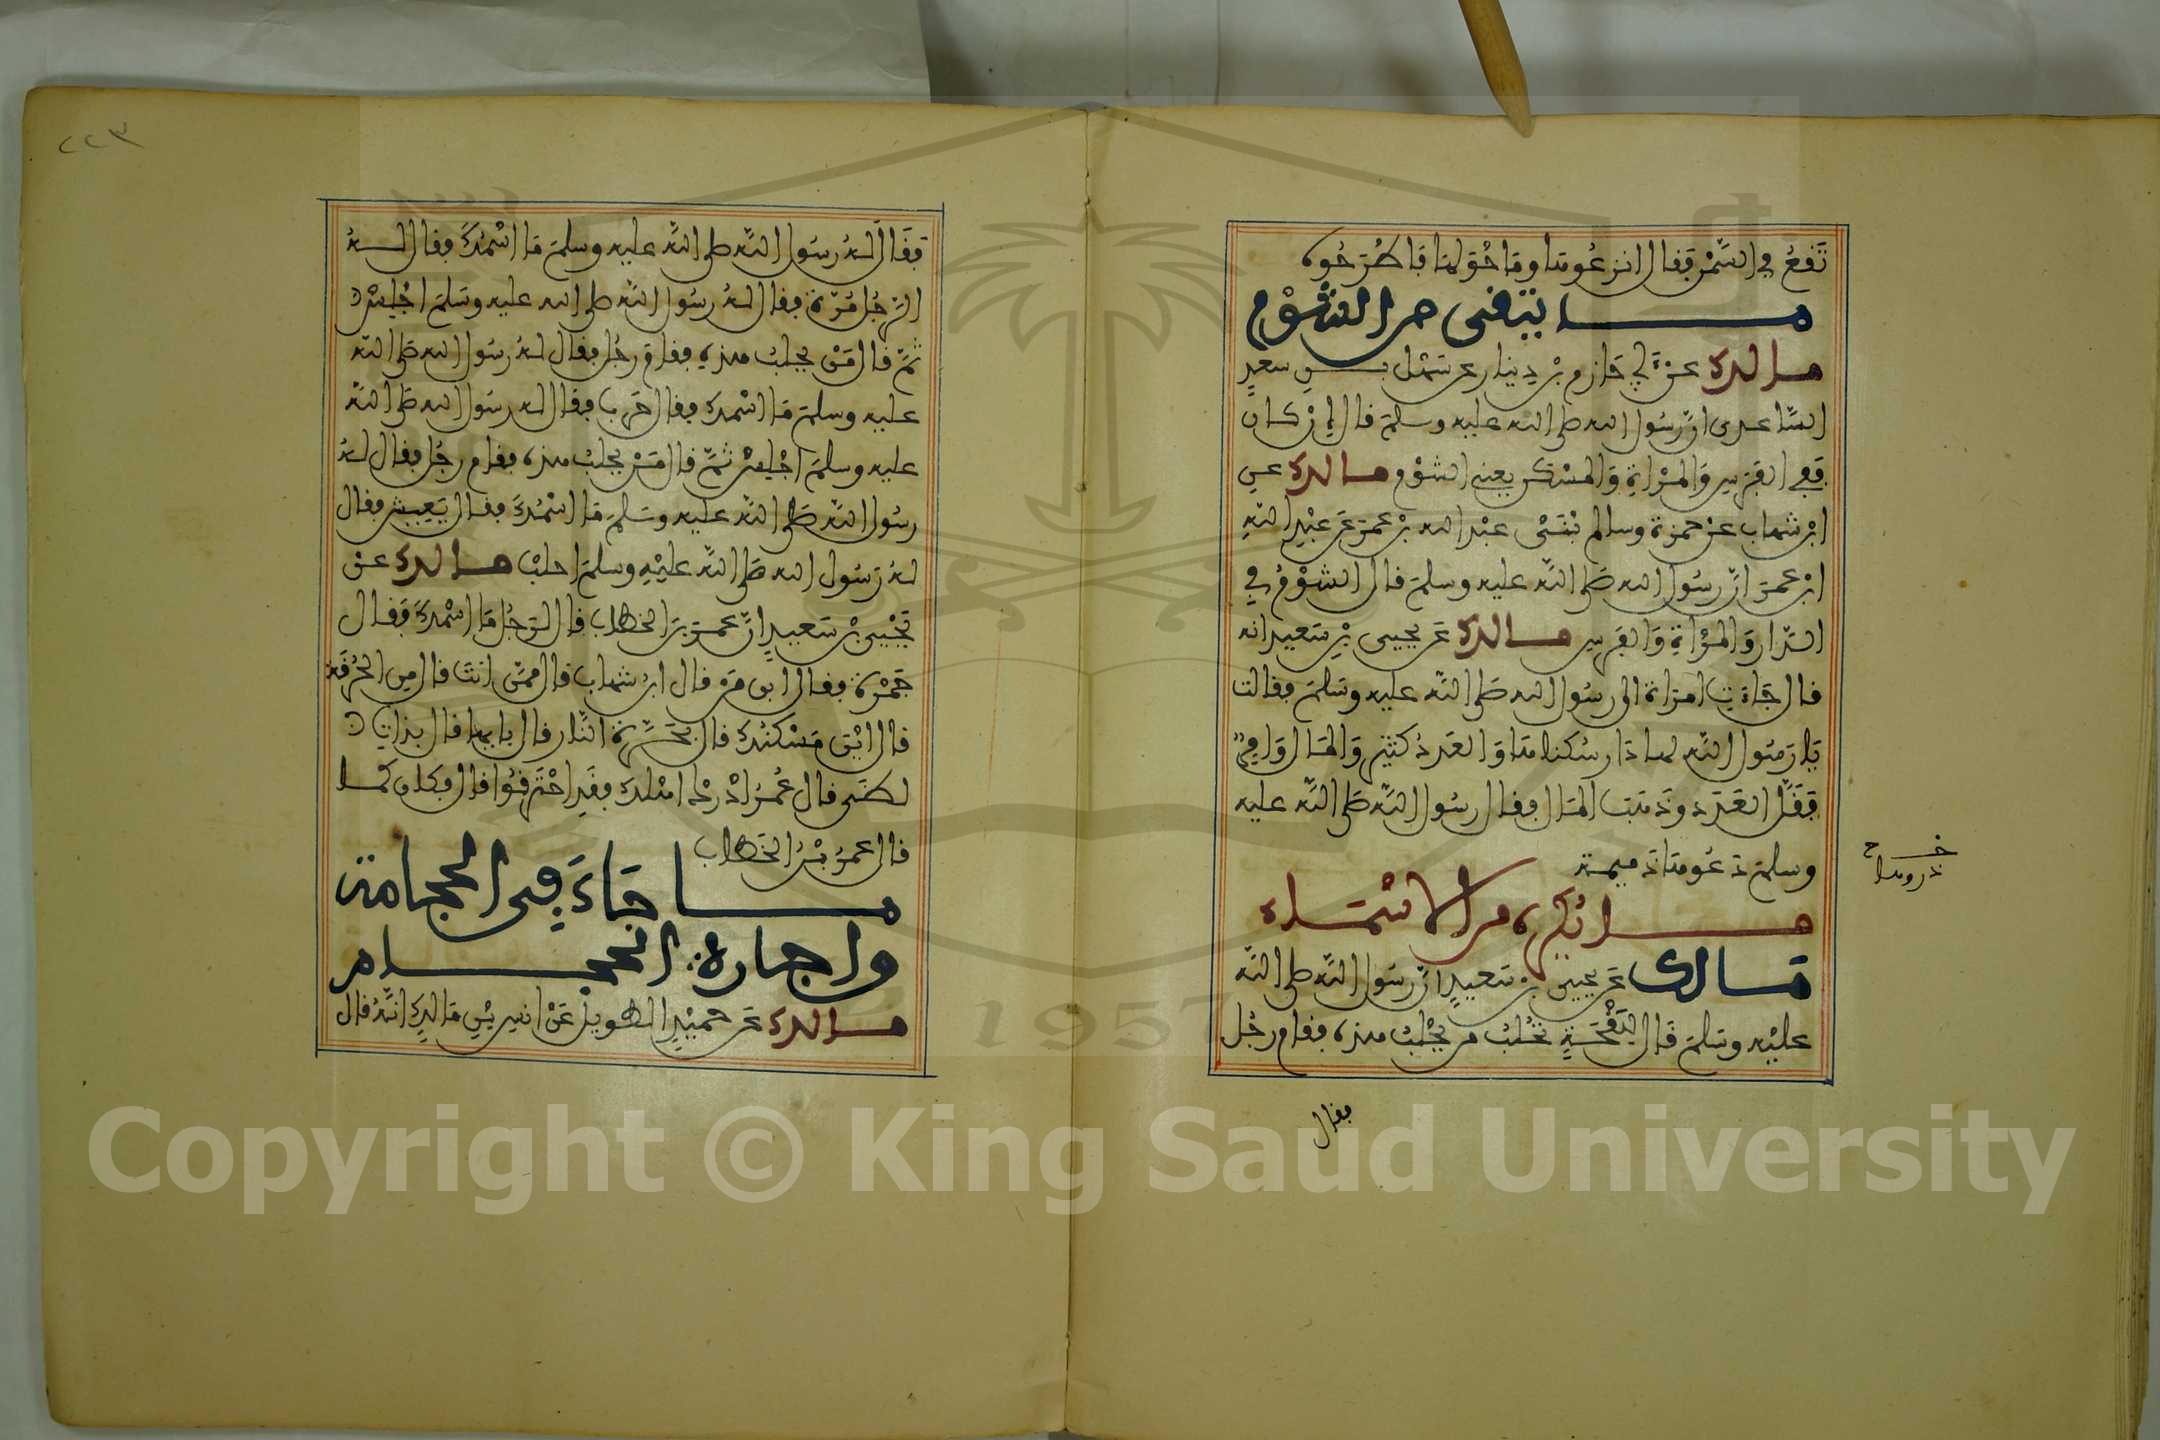 تَفَعُ في السَّمْنِ فَقَالَ انزعُوها وما حَوْلها فَاطْرَحُوه
ما يتقى من الشؤم
مالك عن أبي حَازم بْن دِينار عن سَهْل بن سعدٍ
السَّاعدى انَّ رسُول الله صلى الله عليه وسلم قال إن كان
فَفِي الفَرَسِ وَالمَرْأةِ وَالمسْكن يعني الشؤم مالك عن
ابن شهاب عن حمزة وسالم بْنَىْ عبْد الله بن عمرَ عن عبْد الله
ابن عمرَ انَّ رسُول الله صَلى الله عليه وسلم قال الشؤمُ في
الدَّار وَالمرْأة وَالفَرَسِ مالك عن يحيى بْن سَعيد انه
قال جَاءَت امرَاة الى رسُول الله صَلى الله عليه وسَلمَ فقالت
يَا رسُول الله دَار سكناها وَالعَددُ كثيرٌ وَالمال وَافِرٌ
فَقَلَّ العَدَد وذَهَبَ المال فقال رسُول الله صَلى الله عليه
وسلمَ دَعُوها ذَميمة
ما يكره من الاسْمَاء
مَالك عن يحيى بْن سَعيدٍ انَّ رسُول الله صلى الله
عليْه وسَلمَ قَال لِلَقْحَةٍ تُحْلبُ من يحْلبُ هذه فقام رجُل
فقال
خـــرج
ذروها
٢٢٣
فقَال لهُ رسُول الله صلى الله عليه وسلمَ مَا اسْمُكَ فقال لـهُ
الرَّجُل مُرَّة فقال لهُ رسُول الله صلى الله عليه وسَلمَ اجْلِسْ
ثمَّ قال مَنْ يحلبُ هذه فقامَ رجُل فقال لهُ رسُول الله صَلى الله
عليه وسلمَ مَا اسْمك فقال حَرب فقال له رسُول الله صَلى الله
عليه وسلمَ اجْلِسْ ثمَّ قال مَنْ يحلبُ هذه فقام رجُل فقال لهُ
رسُول الله صَلى الله عليه وسَلمَ مَا اسْمُكَ فقال يَعِيش فقال
لهُ رَسُول الله صَلى الله عليْهِ وسلمَ احلبْ مالك عن
يَحْيى بْن سَعيدٍ انَّ عمرَ بن الخطاب قال لرَجُل مَا اسْمكَ فَقال
جَمْرَة فقال ابن مَن قال ابن شهاب قال ممَّن انتَ قال مِن الحُرَقَة
قال ايْنَ مَسْكنُك قال بحَرَّة النَّار قال بايها قال بذاتِ
لظَى قال عُمرُ ادْرك اهْلك فقد احْتَرَقوا قال فكان كما
قال عمرُ بْنُ الخَطاب
ما جَاءَ في الحجامة
واجارة الحجام
مالك عن حميْدٍ الطويل عَنْ انس بْنِ مَالكٍ انَّهُ قال
Copyright © King Saud University
1957